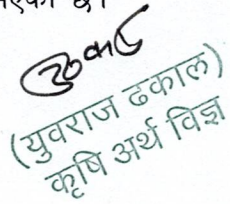 छ।
(युवराज ढकाल)
कृषि अर्थ विज्ञ